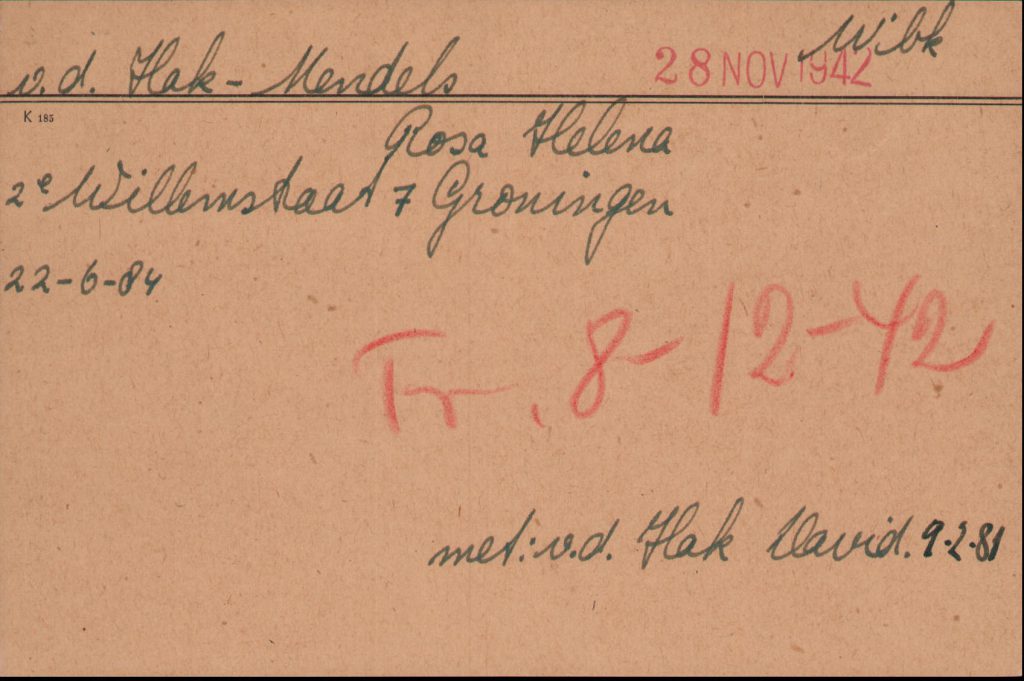 v.d. Hak-Mendels 28 NOV 1942 Wibk
K 185
Rosa Helena
2e Willemstaat 7 Groningen
22-6-84
Tr. 8-12-42
met: v.d. Hak David. 9-2-81